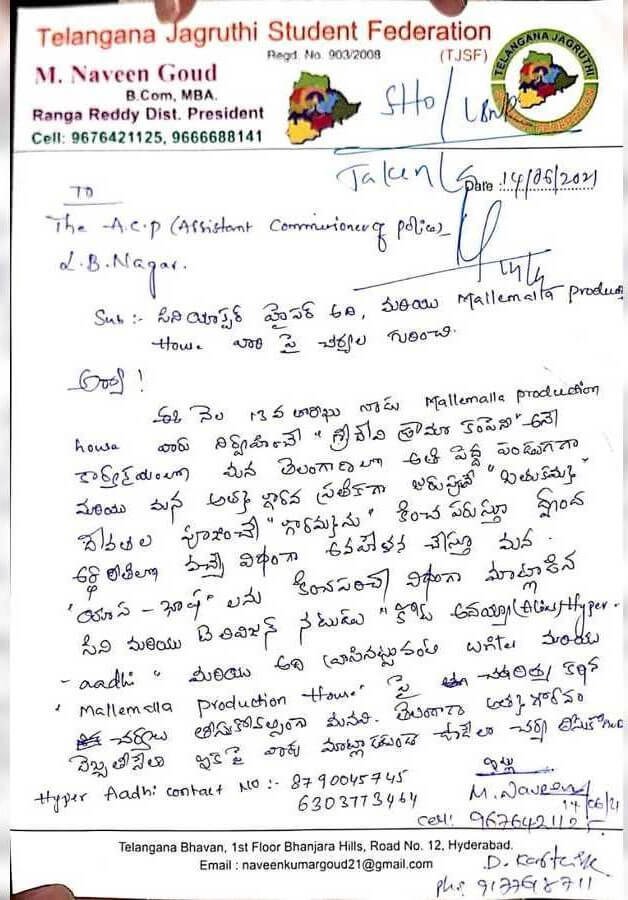 Telangana Jagruthi Student Federation
Regd. No. 903/2008
(TJSF)
M. Naveen Goud
B.Com, MBA.
Ranga Reddy Dist. President
Cell: 9676421125, 9666688141
TELANGANA JAGRUTHI
SHO / LBNR
Taken
Date :14/06/2021
TO
The A.C.P (Assistant Commissioner of police)
L.B.Nagar.
Sub :- సినీ యాక్టర్ హైపర్ ఆది, మరియు Mallemalla production
House వారి పై చర్యల గురించి.
ఆర్యా !
ఈ నెల 13 వ తారీఖు నాడు Mallemalla production
house వారు నిర్వహించే "శ్రీదేవి డ్రామా కంపెనీ" అనే
కార్యక్రమంలో మన తెలంగాణలో అతి పెద్ద పండుగగా
మరియు మన ప్రతీకగా జరుపుకునే "బతుకమ్మ"
దేవతల పూజించే "గౌరమ్మను" కించ పరుస్తూ
వచ్చే విధంగా అవహేళన చేస్తూ మన
"యాస - భాష" లను కించపరిచే విధంగా మాట్లాడిన
సినీ మరియు టెలివిజన్ నటుడు (Alias) Hyper-
- aadhi " మరియు writer మరియు
"Mallemalla production House" పై కఠిన
చర్యలు తీసుకోవాల్సిందిగా మనవి. తెలంగాణ
దెబ్బతీసేలా ఇకపై వారు చర్య
Hyper Aadhi contact NO :- 8790045745
6303773464
ఇట్లు
M. Naveen
14/06/21
Cell: 9676421125
Telangana Bhavan, 1st Floor Bhanjara Hills, Road No. 12, Hyderabad.
Email : naveenkumargoud21@gmail.com
D. Karthik
ph: